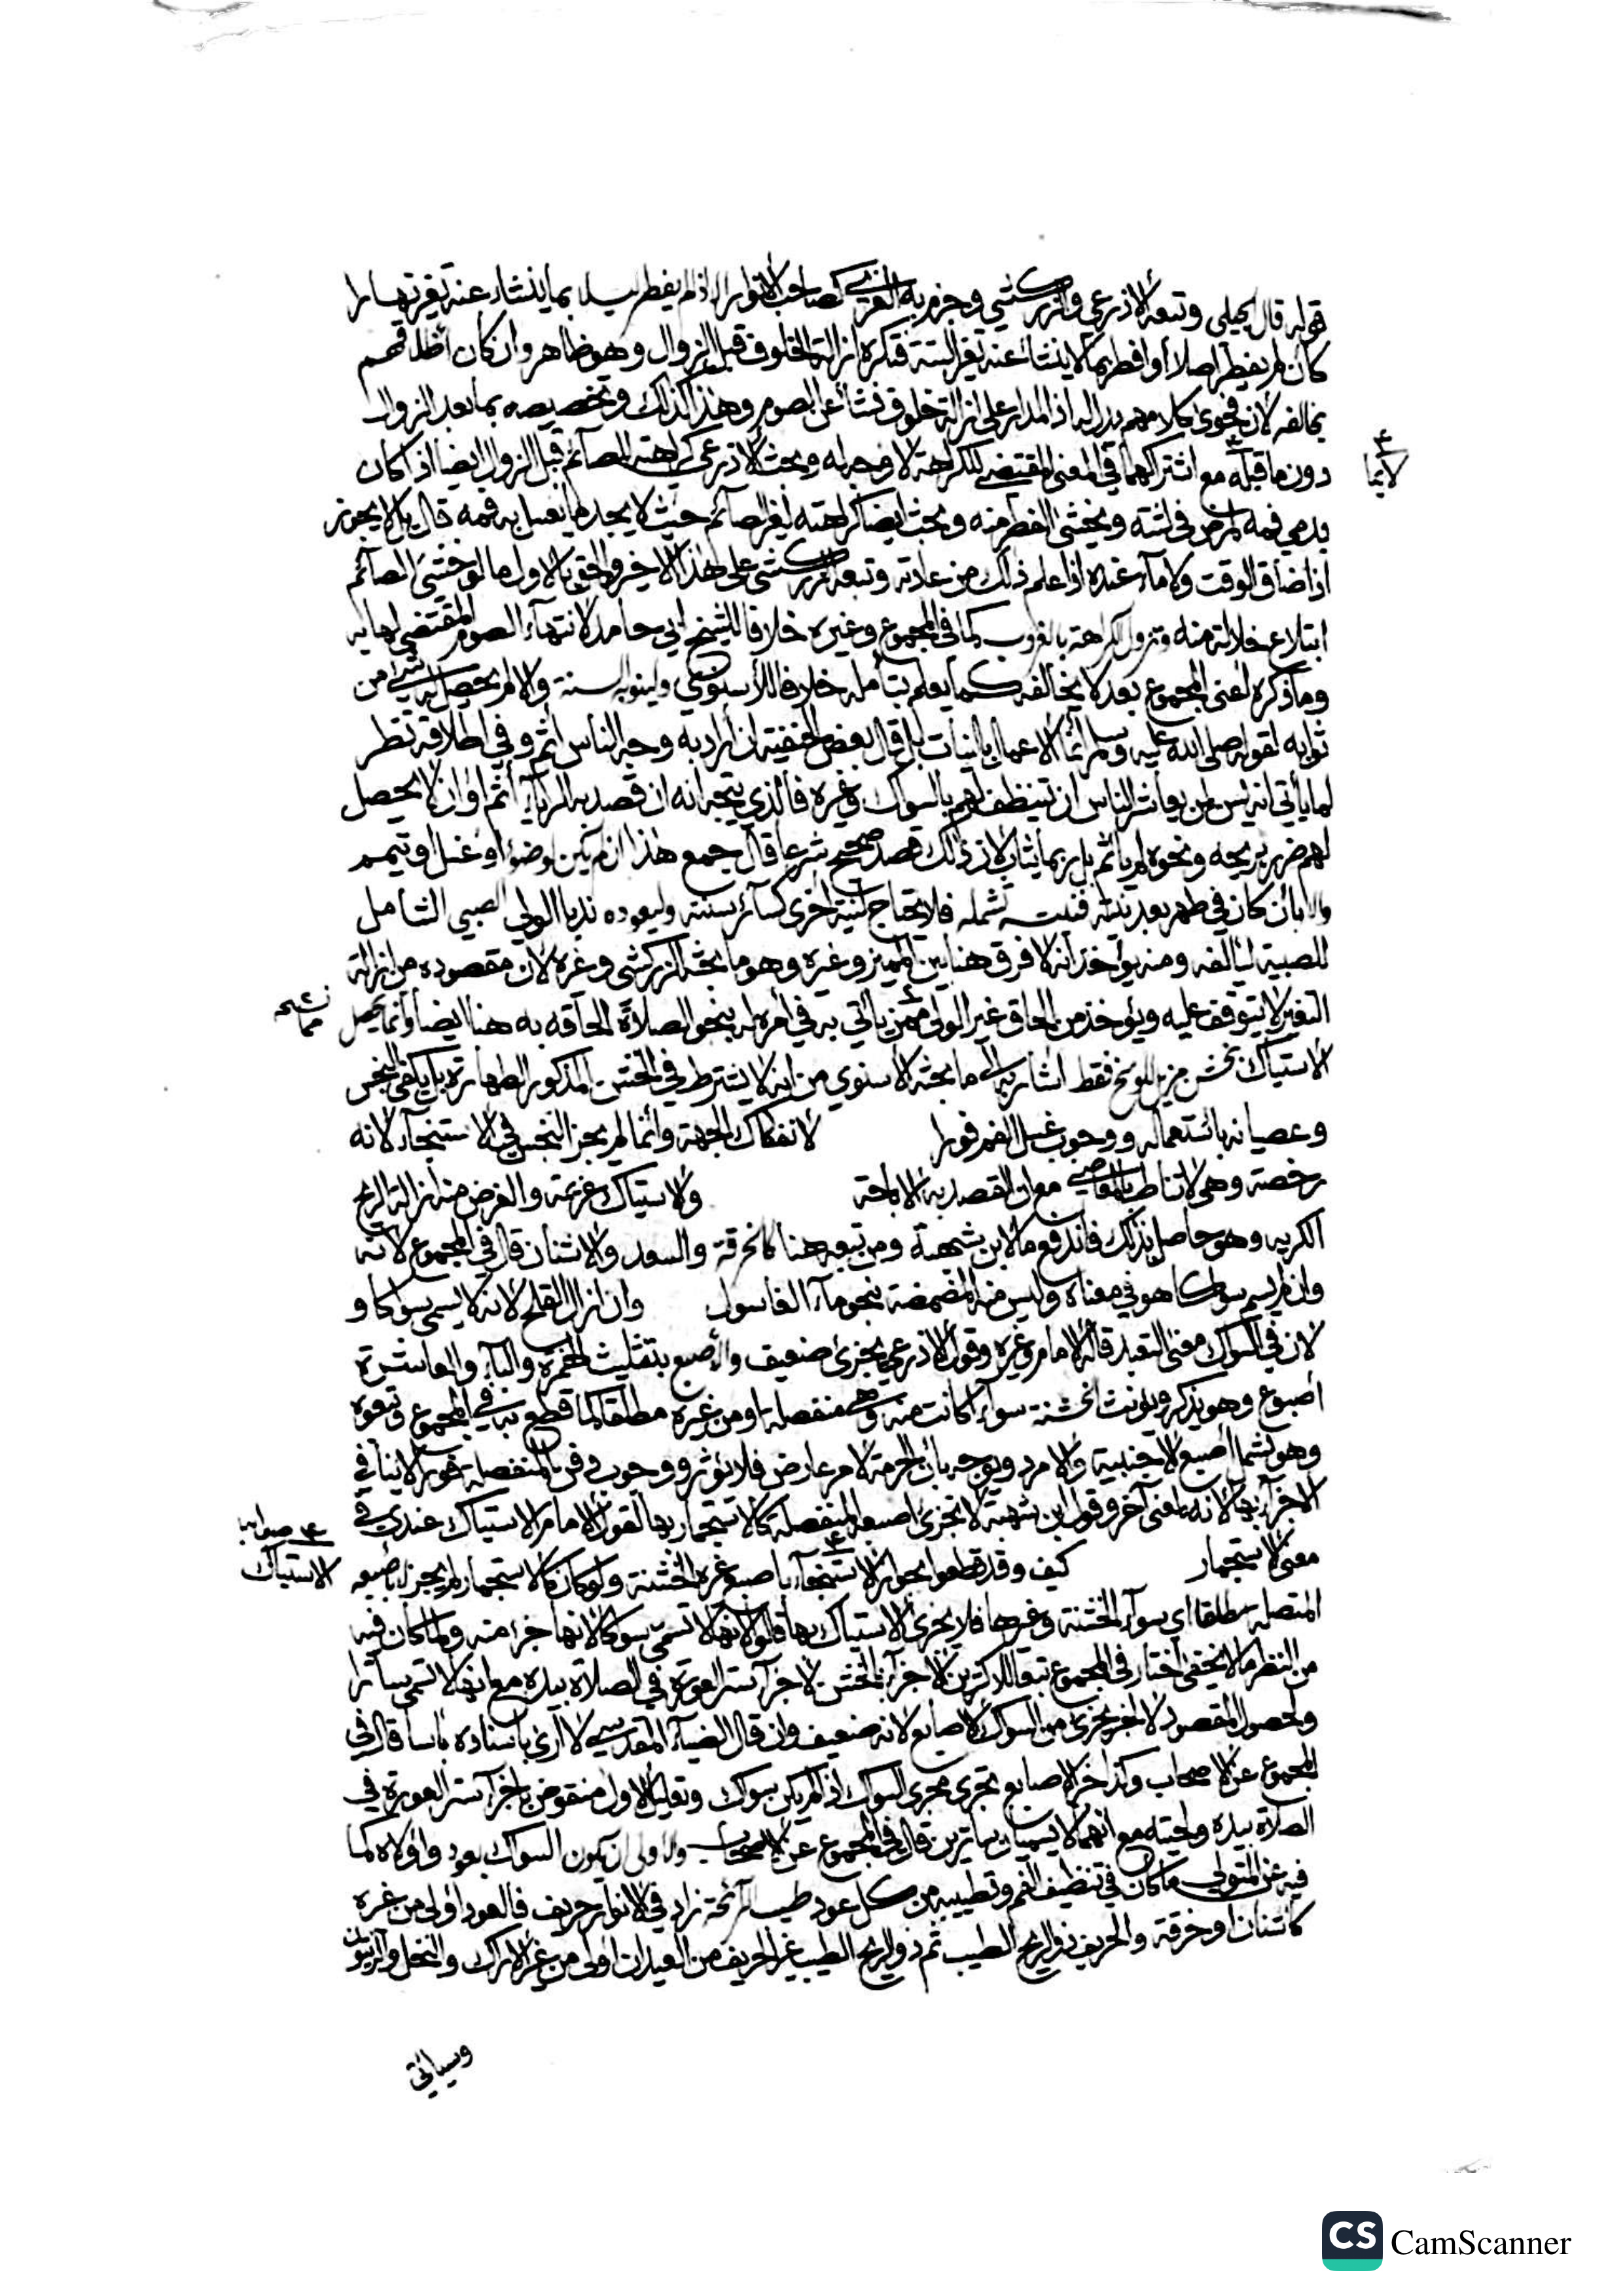 قوله قال الجيلي وتبعه الأذرعي والزركشي وجزم به الغزي كصاحب الأنوار إلا إذا لم يفطر ليلا بما ينشاء عنه تغير نهارا
كأن لم يفطر أصلا أو افطر بما لا ينشأ عنه تغير البتة فتكره ازالة الخلوف قبل الزوال وهو ظاهر وان كان اطلاقهم
يخالفه لأن فحوى كلامهم يدل له اذ المدار على ازالة خلوف نشأ عن الصوم وهذا كذلك وتخصيصه بما بعد الزوال
دون ما قبله مع اشتراكهما في المعنى المقتضي للكراهة لا وجه له وبحث الأذرعي كراهته للصائم قبل الزوال ايضا اذا كان
لا يما
يدمي فمه لمرض في لثته ويخشى الفطر منه وبحث ايضا كراهته لغير الصائم حيث لا يجد ما يغسل به فمه قال بل لا يجوز
اذا ضاق الوقت ولا ماء عنده اذا علم ذلك من عادته وتبعه الزركشي على هذا الاخير والحق بالاول ما لو خشي الصائم
ابتلاع خلالة منه وتزول الكراهة بالغروب كما في المجموع وغيره خلافا للشيخ ابي حامد لانتهاء الصوم المقتضي لها به
وما ذكره اعني المجموع بعد لا يخالفه كما يعلم بتأمله خلافا للأسنوي ولينو به السنة والا لم يحصل له شيء من
ثوابه لقوله صلى الله عليه وسلم انما الاعمال بالنيات بل قال بعض الحنفية ان اراد به وجه الناس أثم وفي اطلاقه نظر
لما يأتي انه يسن لمن يعاشر الناس ان يتنظف لهم بالسواك وغيره فالذي يتجه انه ان قصد به الرياء أثم او ان لا يحصل
لهم ضرر بريحه ونحوه لم يأثم بل ربما يثاب لان ذلك قصد صحيح شرعا قال جمع هذا ان لم يكن لوضوء او غسل او تيمم
والا بأن كان في طهر بعد نيته فنيته تشمله فلا يحتاج لنية اخرى كسائر سننه وليعوده ندبا الولي الصبي الشامل
للصبية ليألفه ومنه يؤخذ انه لا فرق هنا بين المميز وغيره وهو ما بحثه الزركشي وغيره لان مقصوده من ازالة
التغير لا يتوقف عليه ويؤخذ من الحاق غير الولي ممن يأتي به في امره له بنحو الصلاة الحاقه به هنا ايضا وانما يحصل
الاستياك بخشن مزيل للوسخ فقط اشار به الى ما بحثه الاسنوي من انه لا يشترط في الخشن المذكور الطهارة بل يكفي النجس
وعصيانه باستعماله ووجوب غسل الفم فورا لانفكاك الجهة وانما لم يجز النجس في الاستنجاء لانه
رخصة وهي لا تناط بالمعاصي مع ان القصد به الاباحة والاستياك عزيمة والغرض منه ازالة الريح
الكريه وهو حاصل بذلك فاندفع ما لابن شهبة ومن تبعه هنا كالخرقة والسعد والاشنان قال في المجموع لانه
وان لم يسم سواكا هو في معناه وليس منه المضمضة بنحو ماء الغاسول وان ازال القلح لانه لا يسمى سواكا و
لان في السواك معنى التعبد قاله الامام وغيره وقول الاذرعي يجزئ ضعيف والأصبع بتثليث الهمزة والباء والعاشرة
أصبوع وهو يذكر ويؤنث الخشنة سواء كانت منه وهي منفصلة او من غيره مطلقا كما قطع به في المجموع وتبعوه
وهو يشمل أصبع الاجنبية والامرد ويوجه بأن الحرمة لامر عارض فلا يؤثر ووجوب دفن المنفصلة فورا لا ينافي
الاجزاء بها لانه لمعنى آخر وقول ابن شهبة لا تجزئ اصبعه المنفصلة كالاستجمار بها لقول الامام الاستياك عندي في
معنى الاستجمار كيف وقد قطعوا بجواز الاستنجاء باصبع غيره الخشنة ولو كان كالاستجمار لم يجز لا بأصبعه
صوابها
الاستياك
المتصلة مطلقا اي سواء الخشنة وغيرها فلا يجزئ الاستياك بها قالوا لانها لا تسمى سواكا لانها جزء منه ولما كان فيه
من النظر ما لا يخفى اختار في المجموع تبعا للاكثرين الاجزاء بالخشن لاجزاء ستر العورة في الصلاة بيده مع انها لا تسمى ساترا
ولحصول المقصود لا لخبر يجزئ من السواك الأصابع لانه ضعيف وان قال الضياء المقدسي لا ارى باسناده بأسا قال في
المجموع عن الاصحاب وكذا خبر الاصابع تجري مجرى السواك اذا لم يكن سواك وتعليل الاول منقوض باجزاء ستر العورة في
الصلاة بيده ولحيته مع انهما لا يسميان ساترين قال في المجموع عن الاصحاب والاولى ان يكون السواك بعود واولاه كما
فيه عن المتولي ما كان في تنظيف الفم وتطييبه من كل عود طيب الرائحة زاد في الانوار حريف فالعود اولى من غيره
كاشنان او خرقة والحريف ذو الريح الطيب ثم ذو الريح الطيب غير الحريف من العيدان اولى من غير الاراك والنخل والزيتون
وسيأتي
CS CamScanner